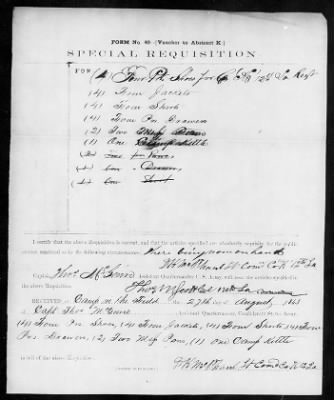 FORM No. 40 (Voucher to Abstract K)
SPECIAL REQUISITION
FOR (4) Four Pr. Shoes for Co 12th La Regt
(4) Four Jackets
(4) Four Shirts
(4) Four Pr. Drawers
(2) Two Mess Pans
(1) One Camp Kettle
I certify that the above Requisition is correct, and that the articles specified are absolutely requisite for the public
service, rendered so by the following circumstances: there being none on hand
Lt Comd Co 12th La
Captain Assistant Quartermaster C. S. Army, will issue the articles specified in
the above Requisition.
Thos M Scott Col 12th La
RECEIVED at Camp in the Field the 27th of August, 1863
of Capt Thos Assistant Quartermaster, Confederate States Army,
(4) Four Pr Shoes, (4) Four Jackets, (4) Four Shirts (4) Four
Prs Drawers (2) Two Mess Pans, (1) One Camp Kettle
in full of the above Requisition.
Lt Comd Co La